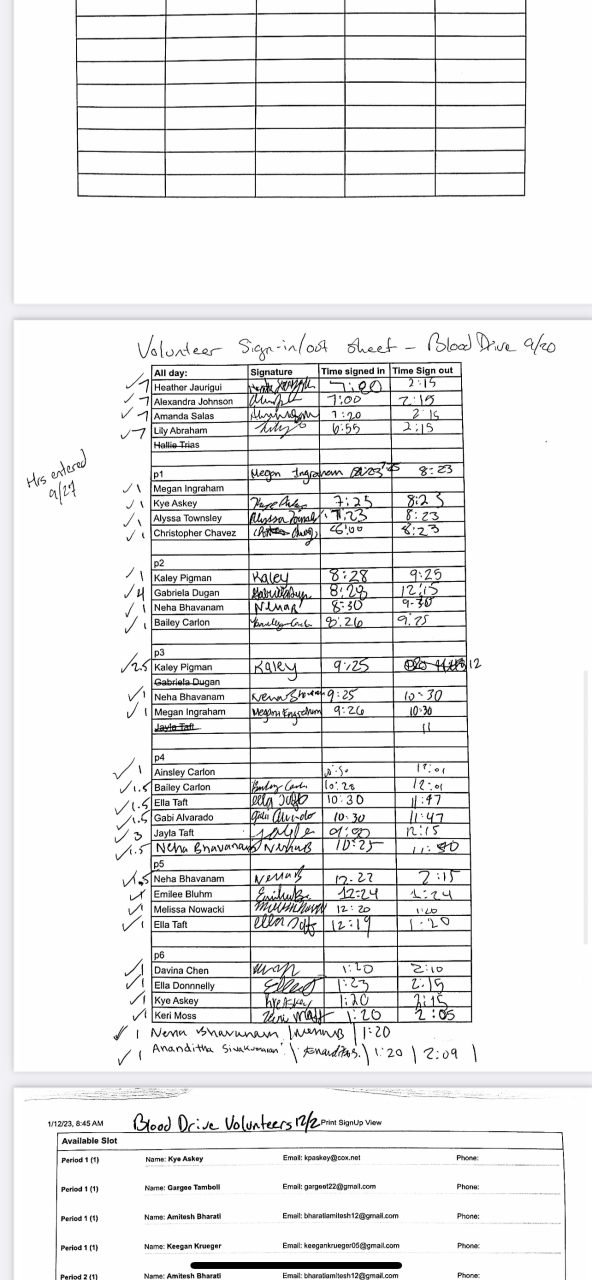 Volunteer Sign-in/out Sheet - Blood Drive 9/20
All day: Signature Time signed in Time Sign out
✓ 7 Heather Jaurigui 7:00 2:15
✓ 7 Alexandra Johnson 7:00 2:15
✓ 7 Amanda Salas 7:20 2:15
✓ 7 Lily Abraham Lily 6:55 2:15
Hallie Trias
Hrs entered 9/27
p1 Megan Ingraham 8:23
✓ 1 Megan Ingraham
✓ 1 Kye Askey Kye Askey 7:25 8:23
✓ 1 Alyssa Townsley Alyssa 7:23 8:23
✓ 1 Christopher Chavez 8:23
p2
✓ 1 Kaley Pigman Kaley 8:28 9:25
✓ 4 Gabriela Dugan 8:28 12:15
✓ 1 Neha Bhavanam NehaB 8:30 9-30
✓ 1 Bailey Carlon Bailey Carlon 8:26 9:25
p3
✓ 2.5 Kaley Pigman Kaley 9:25 12
Gabriela Dugan
✓ 1 Neha Bhavanam Neha Bhavanam 9:25 10:30
✓ 1 Megan Ingraham Megan Ingraham 9:26 10:30
Jayla Taft 11
p4
✓ 1 Ainsley Carlon 12:01
✓ 1.5 Bailey Carlon Bailey Carlon 10:28 12:01
✓ 1.5 Ella Taft ella taft 10:30 11:47
✓ 1.5 Gabi Alvarado Gabi Alvarado 10:30 11:47
✓ 3 Jayla Taft Jayla 12:15
✓ 1.5 Neha Bhavanam NehaB 10:25
p5
✓ 1.5 Neha Bhavanam NehaB 12:22 2:15
✓ 1 Emilee Bluhm 12:24 1:24
✓ 1 Melissa Nowacki 12:20 1:20
✓ 1 Ella Taft ella taft 12:19 1:20
p6
✓ 1 Davina Chen 1:20 2:10
✓ 1 Ella Donnnelly 1:23 2:15
✓ 1 Kye Askey Kye Askey 1:20 2:15
✓ 1 Keri Moss Keri Moss 1:20 2:05
✓ 1 Neha Bhavanam | NehaB | 1:20
✓ 1 Ananditha Sivakumaran | | 1:20 | 2:09 |
1/12/23, 8:45 AM Blood Drive Volunteers 12/2 Print SignUp View
Available Slot
Period 1 (1) Name: Kye Askey Email: kpaskey@cox.net Phone:
Period 1 (1) Name: Gargee Tamboli Email: gargeet22@gmail.com Phone:
Period 1 (1) Name: Amitesh Bharati Email: bharatiamitesh12@gmail.com Phone:
Period 1 (1) Name: Keegan Krueger Email: keegankrueger05@gmail.com Phone:
Period 2 (1) Name: Amitesh Bharati Email: bharatiamitesh12@gmail.com Phone: